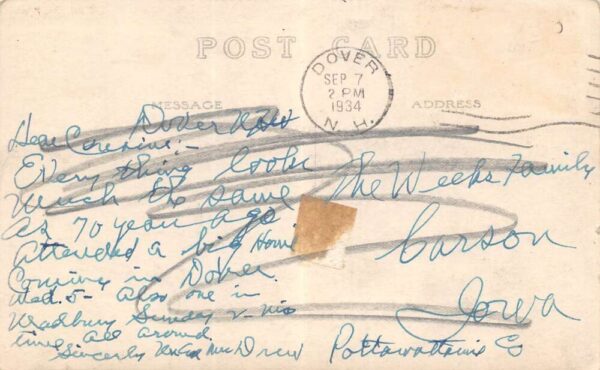 POST CARD
DOVER
SEP 7
2 PM
1934
N. H.
MESSAGE
ADDRESS
Dover
Dear Cousins:-
Every thing looks
much the same
as 70 years ago
attended a big Home
Coming in Dover.
Wed. 5- also one in
Sunday
time all around.
Sincerely Drew
The Weeks Family
Carson
Iowa
Pottawattamie Co